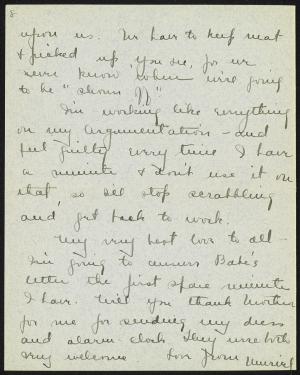 8
upon us. We have to keep neat
& picked up, you see, for we
never know when we're going
to be "shown
I'm working like everything
on my argumentation - and
feel guilty every time I have
a minute & don't use it on
that, so I'll stop scrabbling
and get back to work.
My very best love to all -
I'm going to answer Babe's
letter the first spare minute
I have. Will you thank Mother
for me for sending my dress
and alarm clock. They were both
very welcome. Love from Muriel